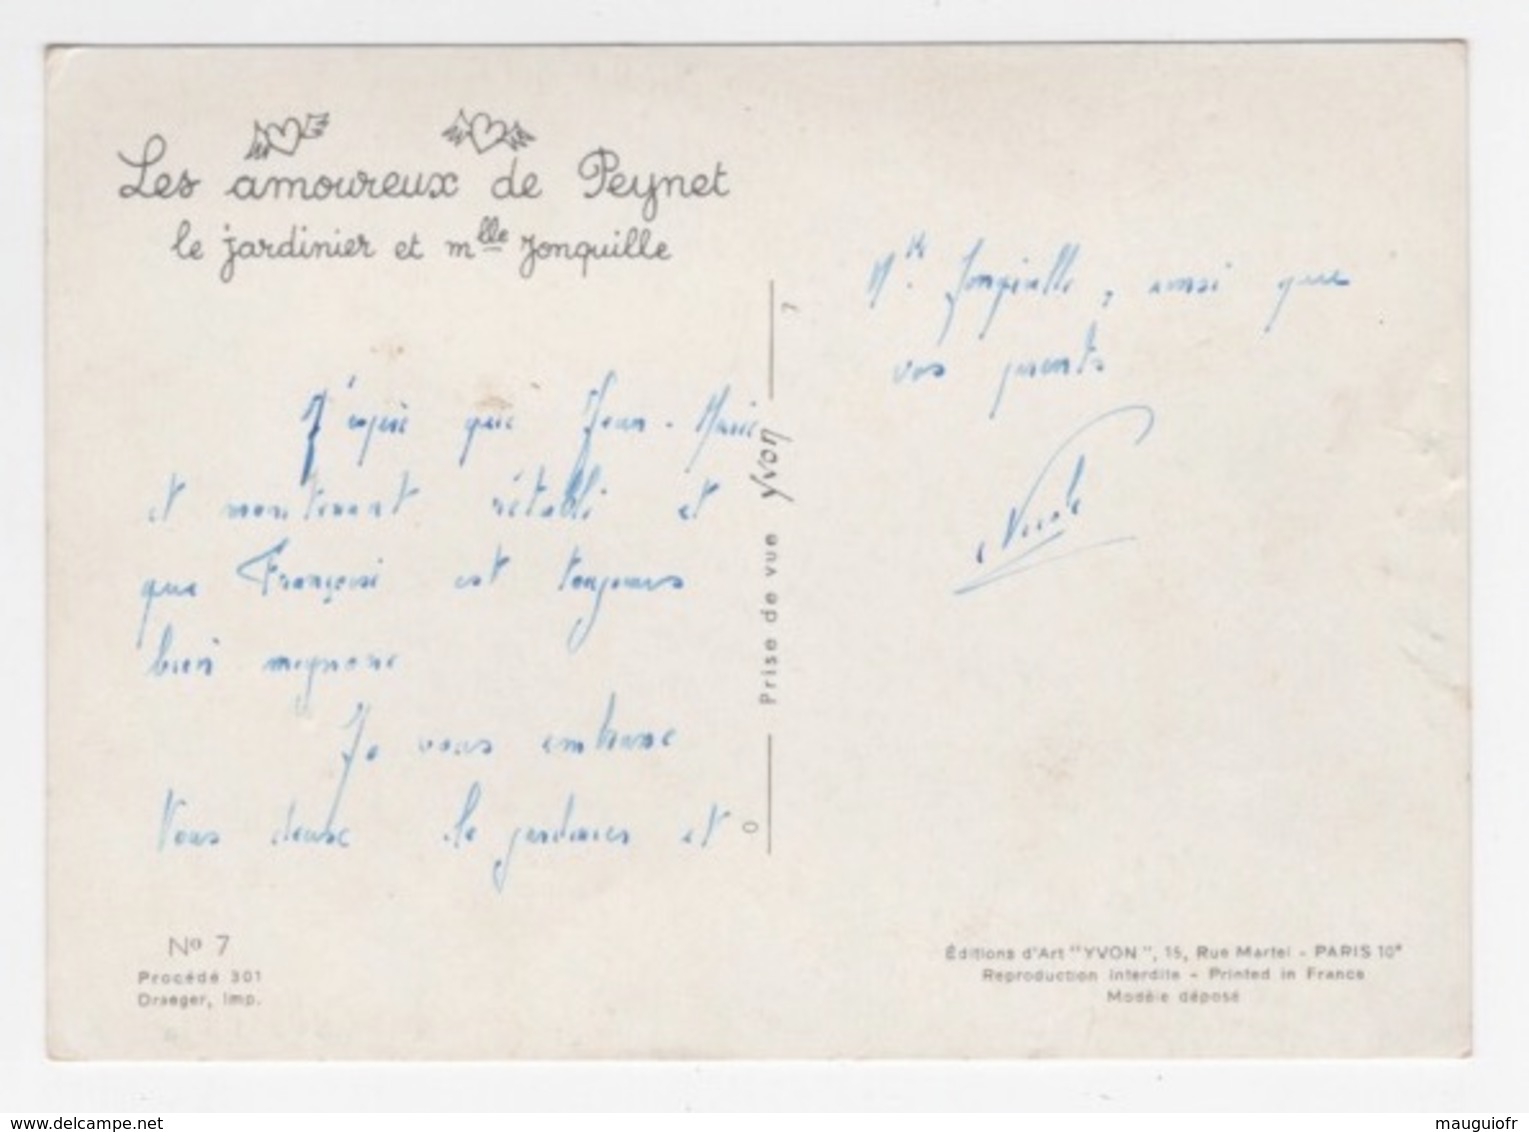 Les amoureux de Peynet
le jardinier et mlle Jonquille
J'espère que Jean-Marie
et maintenant rétabli et
que Françoise est toujours
bien mignone
Je vous embrasse
Vous deux le jardinier et
Mlle Jonquille, ainsi que
vos parents
Nicole
Prise de vue Yvon
0
7
No 7
Procédé 301
Draeger, Imp.
Éditions d'Art "YVON", 15, Rue Martel - PARIS 10e
Reproduction interdite - Printed in France
Modèle déposé
mauguiofr